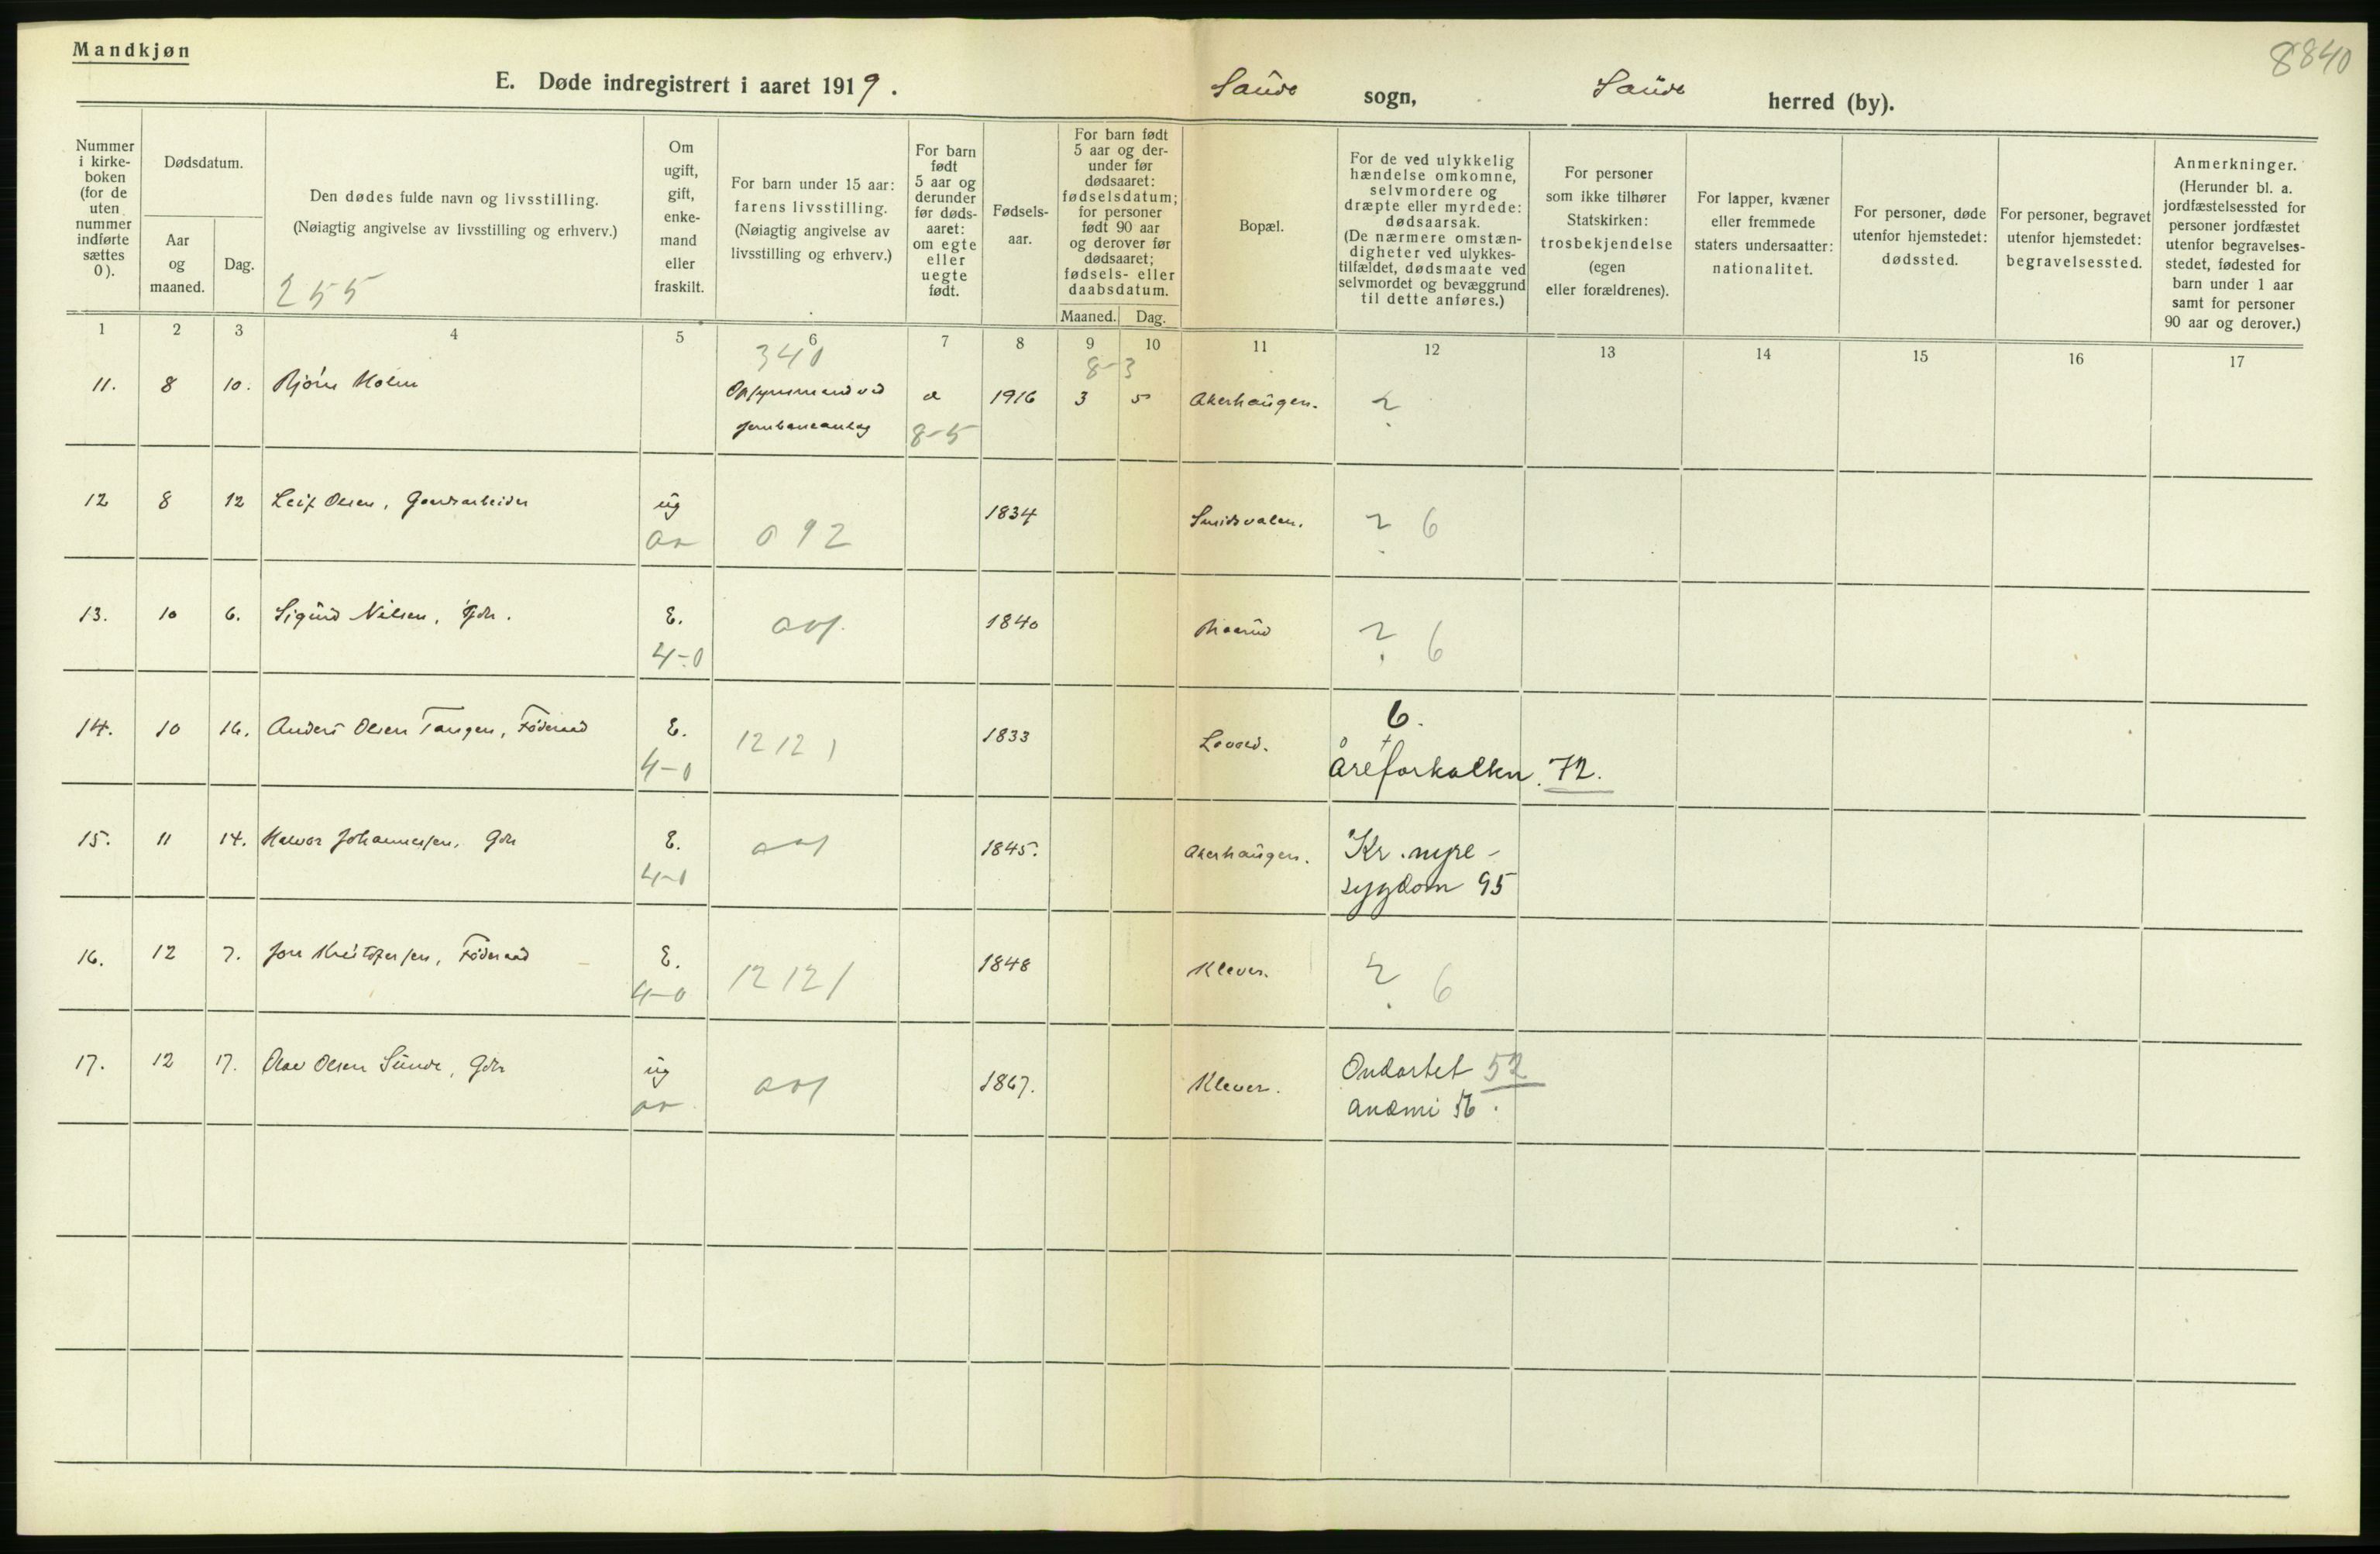 Mandkjøn
8840
E. Døde indregistrert i aaret 1919.
Saude sogn, Saude herred (by).
Nummer i kirke- boken (for de uten nummer indførte sættes 0).
Dødsdatum.
Aar og maaned.
Dag.
Den dødes fulde navn og livsstilling.
(Nøiagtig angivelse av livsstilling og erhverv.)
255
Om ugift, gift, enke- mand eller fraskilt.
For barn under 15 aar: farens livsstilling. (Nøiagtig angivelse av livsstilling og erhverv.)
For barn født 5 aar og derunder før døds- aaret: om egte eller uegte født.
Fødsels- aar.
For barn født 5 aar og der- under før dødsaaret: fødselsdatum; for personer født 90 aar og derover før dødsaaret; fødsels- eller daabsdatum.
Maaned. Dag.
Bopæl.
For de ved ulykkelig hændelse omkomne, selvmordere og dræpte eller myrdede: dødsaarsak. (De nærmere omstæn- digheter ved ulykkes- tilfældet, dødsmaate ved selvmordet og bevæggrund til dette anføres.)
For personer som ikke tilhører Statskirken: trosbekjendelse (egen eller forældrenes).
For lapper, kvæner eller fremmede staters undersaatter: nationalitet.
For personer, døde utenfor hjemstedet: dødssted.
For personer, begravet utenfor hjemstedet: begravelsessted.
Anmerkninger. (Herunder bl. a. jordfæstelsessted for personer jordfæstet utenfor begravelses- stedet, fødested for barn under 1 aar samt for personer 90 aar og derover.)
1 2 3 4 5 6 7 8 9 10 11 12 13 14 15 16 17
340
8-3
11. 8 10. Bjørn Holm Opsynsmand ved 1916 3 5 Akerhaugen. ?
jernbaneanlæg 8-5
12 8 12 Leif Olsen, Gaardsarbeider ug 1834 ? 6
092
13. 10 6. Sigurd Nilsen, Gdr. E. 1840 ? 6
4-0
14. 10 16. Anders Olsen Tangen, Føderaad E. 12121 1833 6.
4-0 Åreforkalkn. 72.
15. 11 14. Halvor Johannessen, Gdr E. 1845. Akerhaugen. Kr. nyre-
4-0 sygdom 95
16. 12 7. Jon Kristofersen, Føderaad E. 12121 1848 Klever. ? 6
4-0
17. 12 17. Olav Olsen Sunde, Gdr ug 1867. Klever. Ondartet 52
anæmi 56.